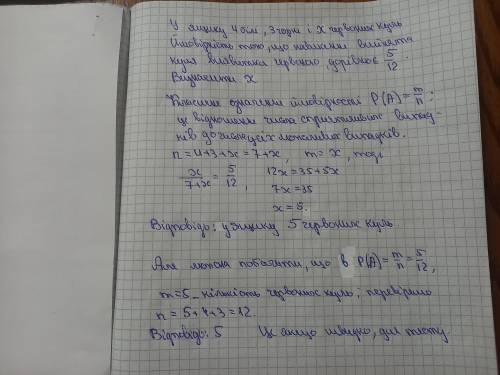 У ящику 4 білі, 3 чорні і x червоних куль
Ймовірність того, що навмання вийнята
куля виявиться червоною, дорівнює 5/12.
Визначити x
Класичне означення ймовірності P(A) = m/n;
це відношення числа сприятливих випад-
ків до числа усіх можливих випадків.
n = 4+3+x = 7+x, m = x, тоді
x/(7+x) = 5/12, 12x = 35+5x
7x = 35
x = 5.
Відповідь: у ящику 5 червоних куль
Але можна побачити, що в P(A) = m/n = 5/12,
m = 5 – кількість червоних куль; перевіримо
n = 5+4+3 = 12.
Відповідь: 5 Це якщо швидко, для тесту.